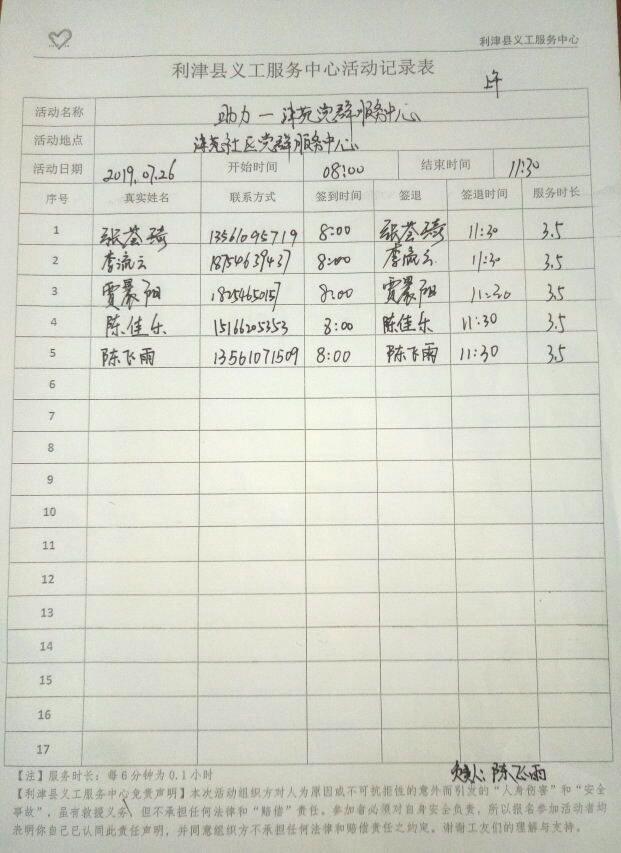 利津县义工服务中心
利津县义工服务中心活动记录表
上午
活动名称 助力一津苑党群服务中心
活动地点 津苑社区党群服务中心
活动日期 2019.07.26 开始时间 08:00 结束时间 11:30
序号 真实姓名 联系方式 签到时间 签退 签退时间 服务时长
1 张荟琦 13561095719 8:00 张荟琦 11:30 3.5
2 李流云 18754639437 8:00 李流云 11:30 3.5
3 贾晨阳 18254650157 8:00 贾晨阳 11:30 3.5
4 陈佳乐 15166205353 8:00 陈佳乐 11:30 3.5
5 陈飞雨 13561071509 8:00 陈飞雨 11:30 3.5
6
7
8
9
10
11
12
13
14
15
16
17
【注】服务时长：每6分钟为0.1小时 负责人：陈飞雨
【利津县义工服务中心免责声明】本次活动组织方对人为原因或不可抗拒性的意外而引发的“人身伤害”和“安全
事故”，虽有救援义务，但不承担任何法律和“赔偿”责任。参加者必须对自身安全负责，所以报名参加活动者均
表明你自己已认同此责任声明，并同意组织方不承担任何法律和赔偿责任之约定。谢谢工友们的理解与支持。